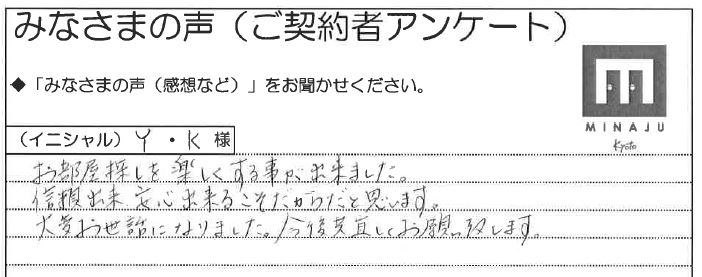 みなさまの声（ご契約者アンケート）
◆「みなさまの声（感想など）」をお聞かせください。
MINAJU
Kyoto
（イニシャル）Y・K様
お部屋探しを楽しくする事が出来ました。
信頼出来安心出来るこそだからだと思います。
大変お世話になりました。今後共宜しくお願い致します。